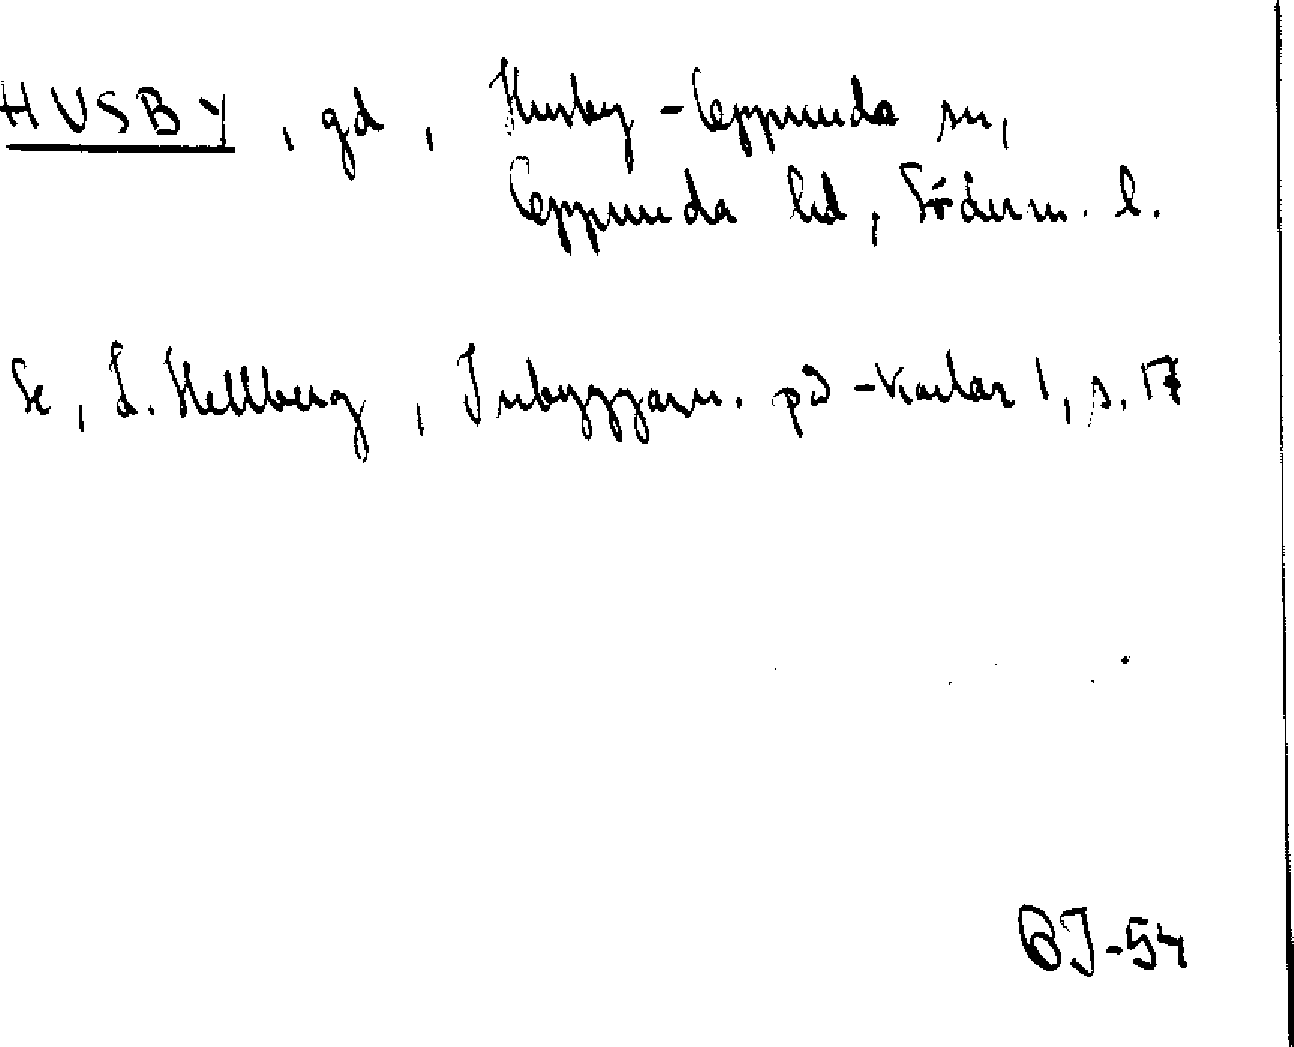 HUSBY, gd, Husby-Oppunda sn,
Oppunda hd, Söderm. l.
Se, L. Hellberg, Inbyggarn. på -karlar 1, s. 17
BJ-54